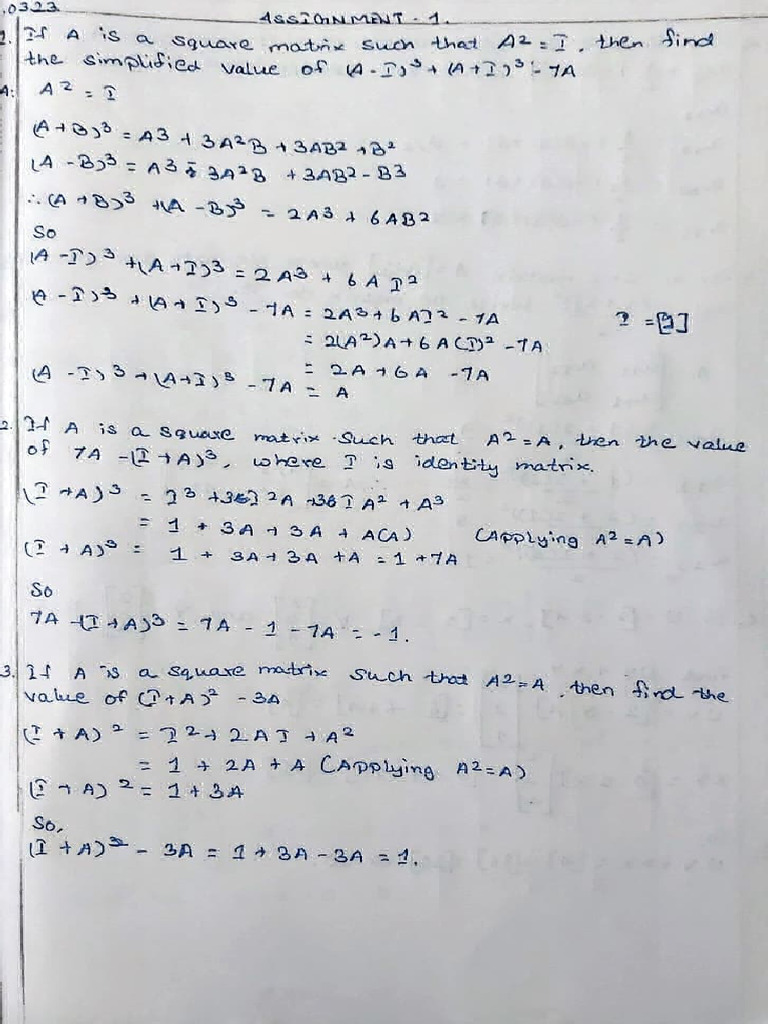 .0323
ASSIGNMENT - 1.
1. If A is a square matrix such that A² = I, then find
the simplified value of (A - I)³ + (A + I)³ - 7A
A: A² = I
(A + B)³ = A3 + 3A²B + 3AB² + B²
(A - B)³ = A³ - 3A²B + 3AB² - B3
∴ (A + B)³ + (A - B)³ = 2A³ + 6AB²
So
(A - I)³ + (A + I)³ = 2A³ + 6A I²
(A - I)³ + (A + I)³ - 7A = 2A³ + 6AI² - 7A
= 2(A²)A + 6A(I)² - 7A
= 2A + 6A - 7A
(A - I)³ + (A + I)³ - 7A = A
2. If A is a square matrix such that A² = A, then the value
of 7A - (I + A)³, where I is identity matrix.
(I + A)³ = I³ + 3I²A + 3IA² + A³
= 1 + 3A + 3A + A(A) (Applying A² = A)
(I + A)³ = 1 + 3A + 3A + A = 1 + 7A
So
7A - (I + A)³ = 7A - 1 - 7A = - 1.
3. If A is a square matrix such that A² = A, then find the
value of (I + A)² - 3A
(I + A)² = I² + 2AI + A²
= 1 + 2A + A (Applying A² = A)
(I + A)² = 1 + 3A
So,
(I + A)² - 3A = 1 + 3A - 3A = 1.